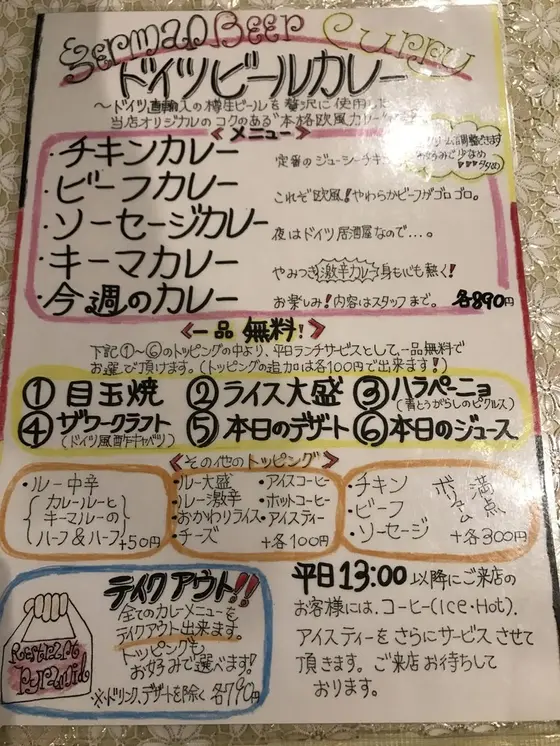 German Beer Curry
ドイツビールカレー
～ドイツ直輸入の樽生ビールを贅沢に使用した
当店オリジナルのコクのある"本格欧風カレー
<メニュー>
・チキンカレー 定番のジューシーチキン
お好みで少なめ
・ビーフカレー これぞ欧風!やわらかビーフがゴロゴロ。
・ソーセージカレー 夜はドイツ居酒屋なので…。
・キーマカレー やみつき激辛カレー身も心も熱く!
・今週のカレー お楽しみ!内容はスタッフまで。 各890円
<一品 無料!>
下記①～⑥のトッピングの中より、平日ランチサービスとして、一品無料で
お選び頂けます。(トッピングの追加は各100円で出来ます!)
① 目玉焼 ② ライス大盛 ③ ハラペーニョ
(青とうがらしのピクルス)
④ ザワークラフト ⑤ 本日のデザート ⑥ 本日のジュース
(ドイツ風酢キャベツ)
<その他のトッピング>
・ルー中辛
カレールーと
キーマルーの
ハーフ&ハーフ +50円
・ルー大盛 ・アイスコーヒー
・ルー激辛 ・ホットコーヒー
・おかわりライス ・アイスティー
・チーズ +各100円
・チキン
・ビーフ
・ソーセージ
ボリューム満点
+各300円
テイクアウト!!
全てのカレーメニューを
テイクアウト出来ます。
トッピングも
お好みで選べます!
※ドリンク、デザートを除く 各790円
Restrant
Pyramid
平日13:00以降にご来店の
お客様には、コーヒー(Ice・Hot).
アイスティーをさらにサービスさせて
頂きます。ご来店お待ちして
おります。